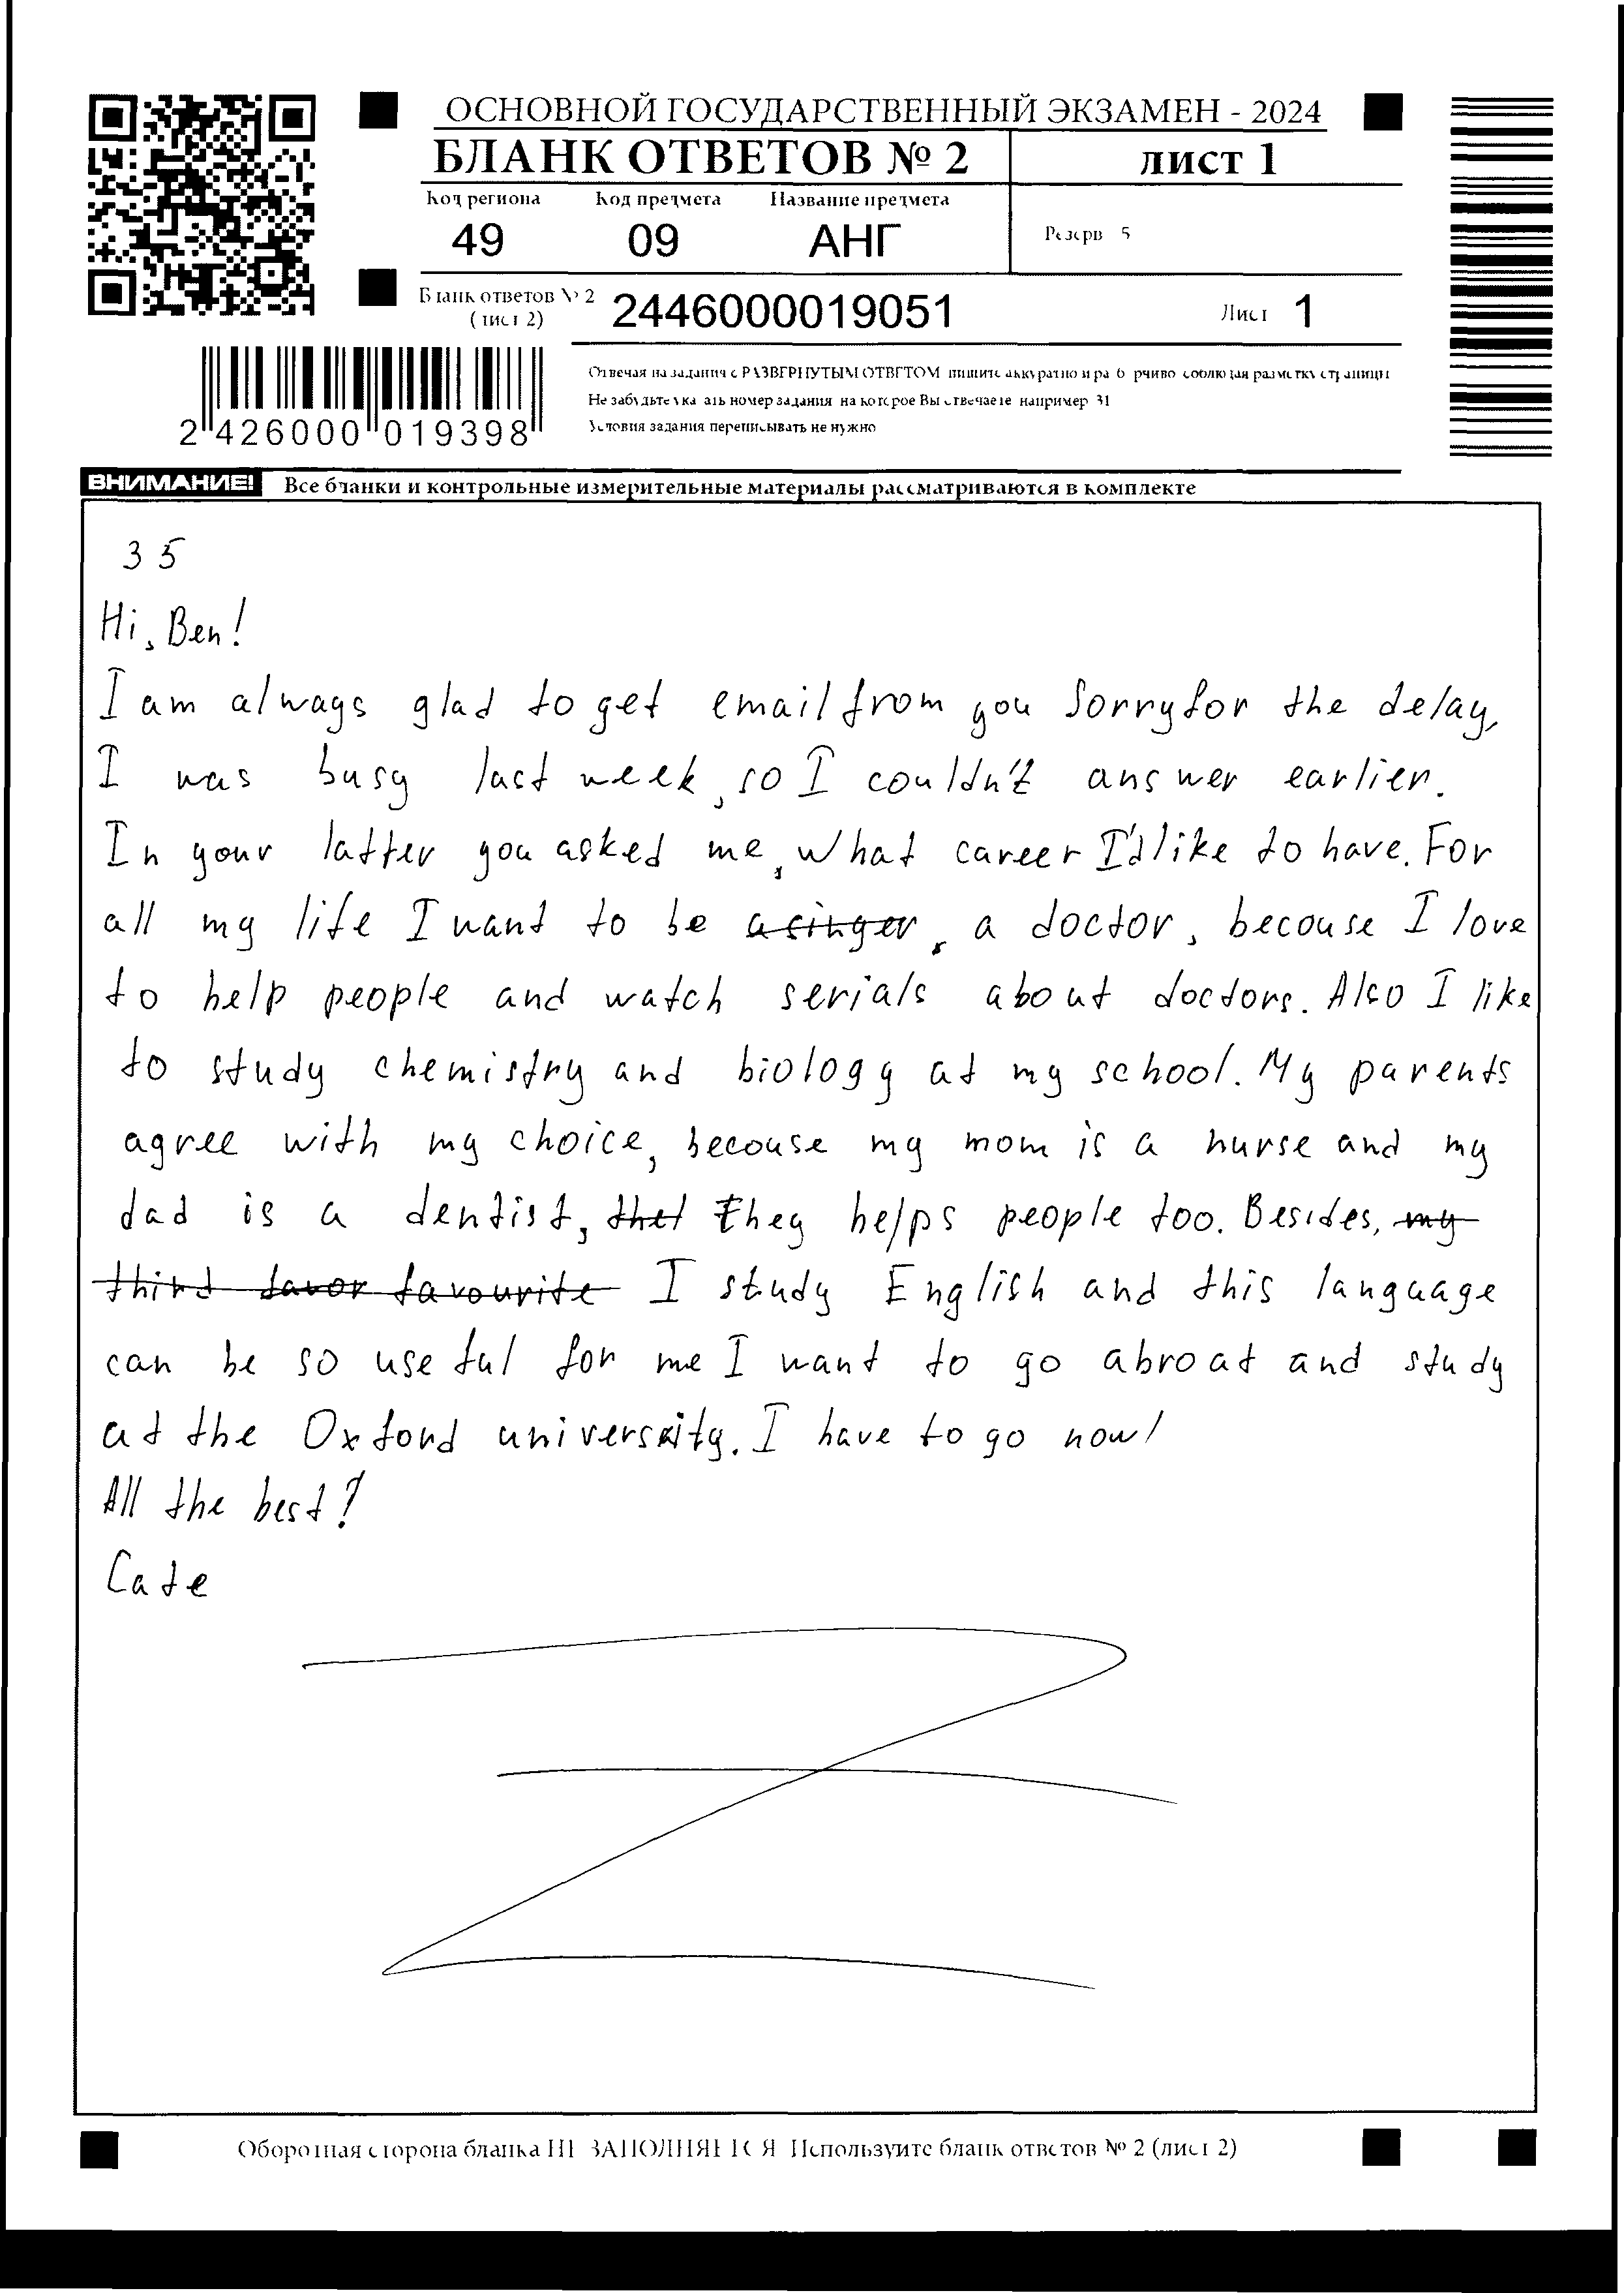 ОСНОВНОЙ ГОСУДАРСТВЕННЫЙ ЭКЗАМЕН - 2024
БЛАНК ОТВЕТОВ № 2
лист 1
Код региона Код предмета Название предмета
49 09 АНГ
Резерв 5
Бланк ответов № 2
(лист 2)
2446000019051
Лист 1
2 426000 019398
Отвечая на задания с РАЗВЕРНУТЫМ ОТВЕТОМ пишите аккуратно и разборчиво соблюдая разметку страницы
Не забудьте указать номер задания на которое Вы отвечаете например 31
Условия задания переписывать не нужно
ВНИМАНИЕ! Все бланки и контрольные измерительные материалы рассматриваются в комплекте
35
Hi, Ben!
I am always glad to get email from you Sorry for the delay,
I was busy last week, so I couldn't answer earlier.
In your latter you asked me, what career I'd like to have. For
all my life I want to be a singer, a doctor, becouse I love
to help people and watch serials about doctors. Also I like
to study chemistry and biology at my school. My parents
agree with my choice, becouse my mom is a nurse and my
dad is a dentist, thet they helps people too. Besides, my
third favor favourite I study English and this language
can be so useful for me I want to go abroat and study
at the Oxford university. I have to go now!
All the best!
Cate
Оборотная сторона бланка НЕ ЗАПОЛНЯЕТСЯ Используйте бланк ответов № 2 (лист 2)